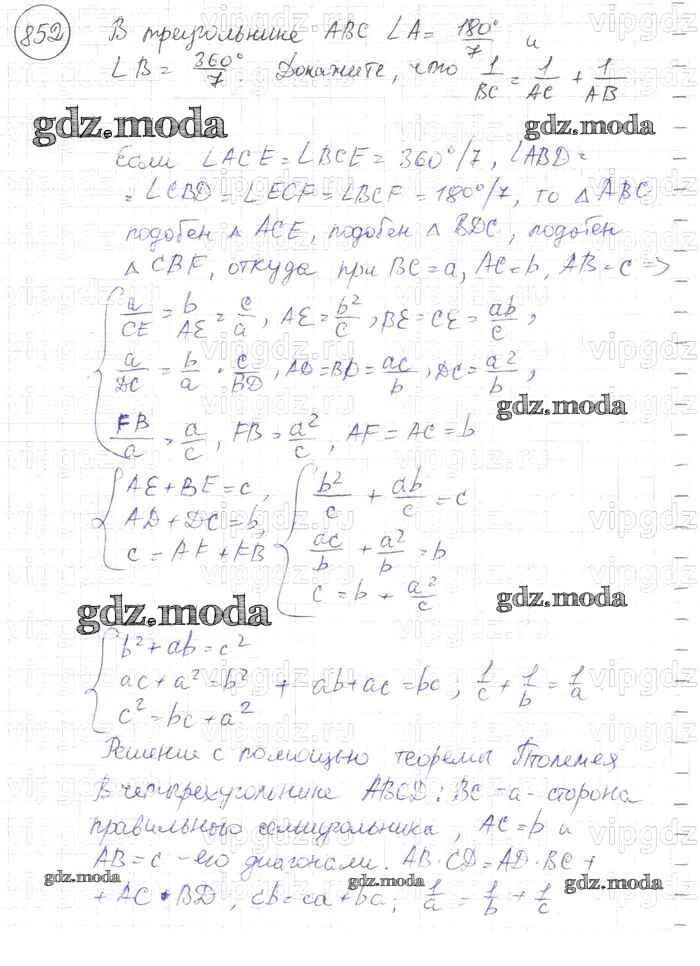 852
В треугольнике ABC ∠A = 180°/7 и
∠B = 360°/7. Докажите, что 1/BC = 1/AC + 1/AB
gdz.moda
gdz.moda
Если ∠ACE = ∠BCE = 360°/7, ∠ABD =
= ∠CBD = ∠ECF = ∠BCF = 180°/7, то △ABC
подобен △ ACE, подобен △ BDC, подобен
△ CBF, откуда при BC = a, AC = b, AB = c ⇒
a/CE = b/AE = c/a, AE = b²/c, BE = CE = ab/c,
a/DC = b/a · c/BD, AD = BD = ac/b, DC = a²/b,
gdz.moda
FB/a = a/c, FB = a²/c, AF = AC = b
AE + BE = c, b²/c + ab/c = c
AD + DC = b, ac/b + a²/b = b
c = AF + FB c = b + a²/c
gdz.moda
gdz.moda
b² + ab = c²
ac + a² = b² + ab + ac = bc; 1/c + 1/b = 1/a
c² = bc + a²
Решение с помощью теоремы Птолемея
В четырехугольнике ABCD: BC = a - сторона
правильного семиугольника, AC = b и
AB = c - его диагонали. AB · CD = AD · BC +
gdz.moda
gdz.moda
gdz.moda
+ AC · BD, cb = ca + ba; 1/a = 1/b + 1/c
vipgdz.ru